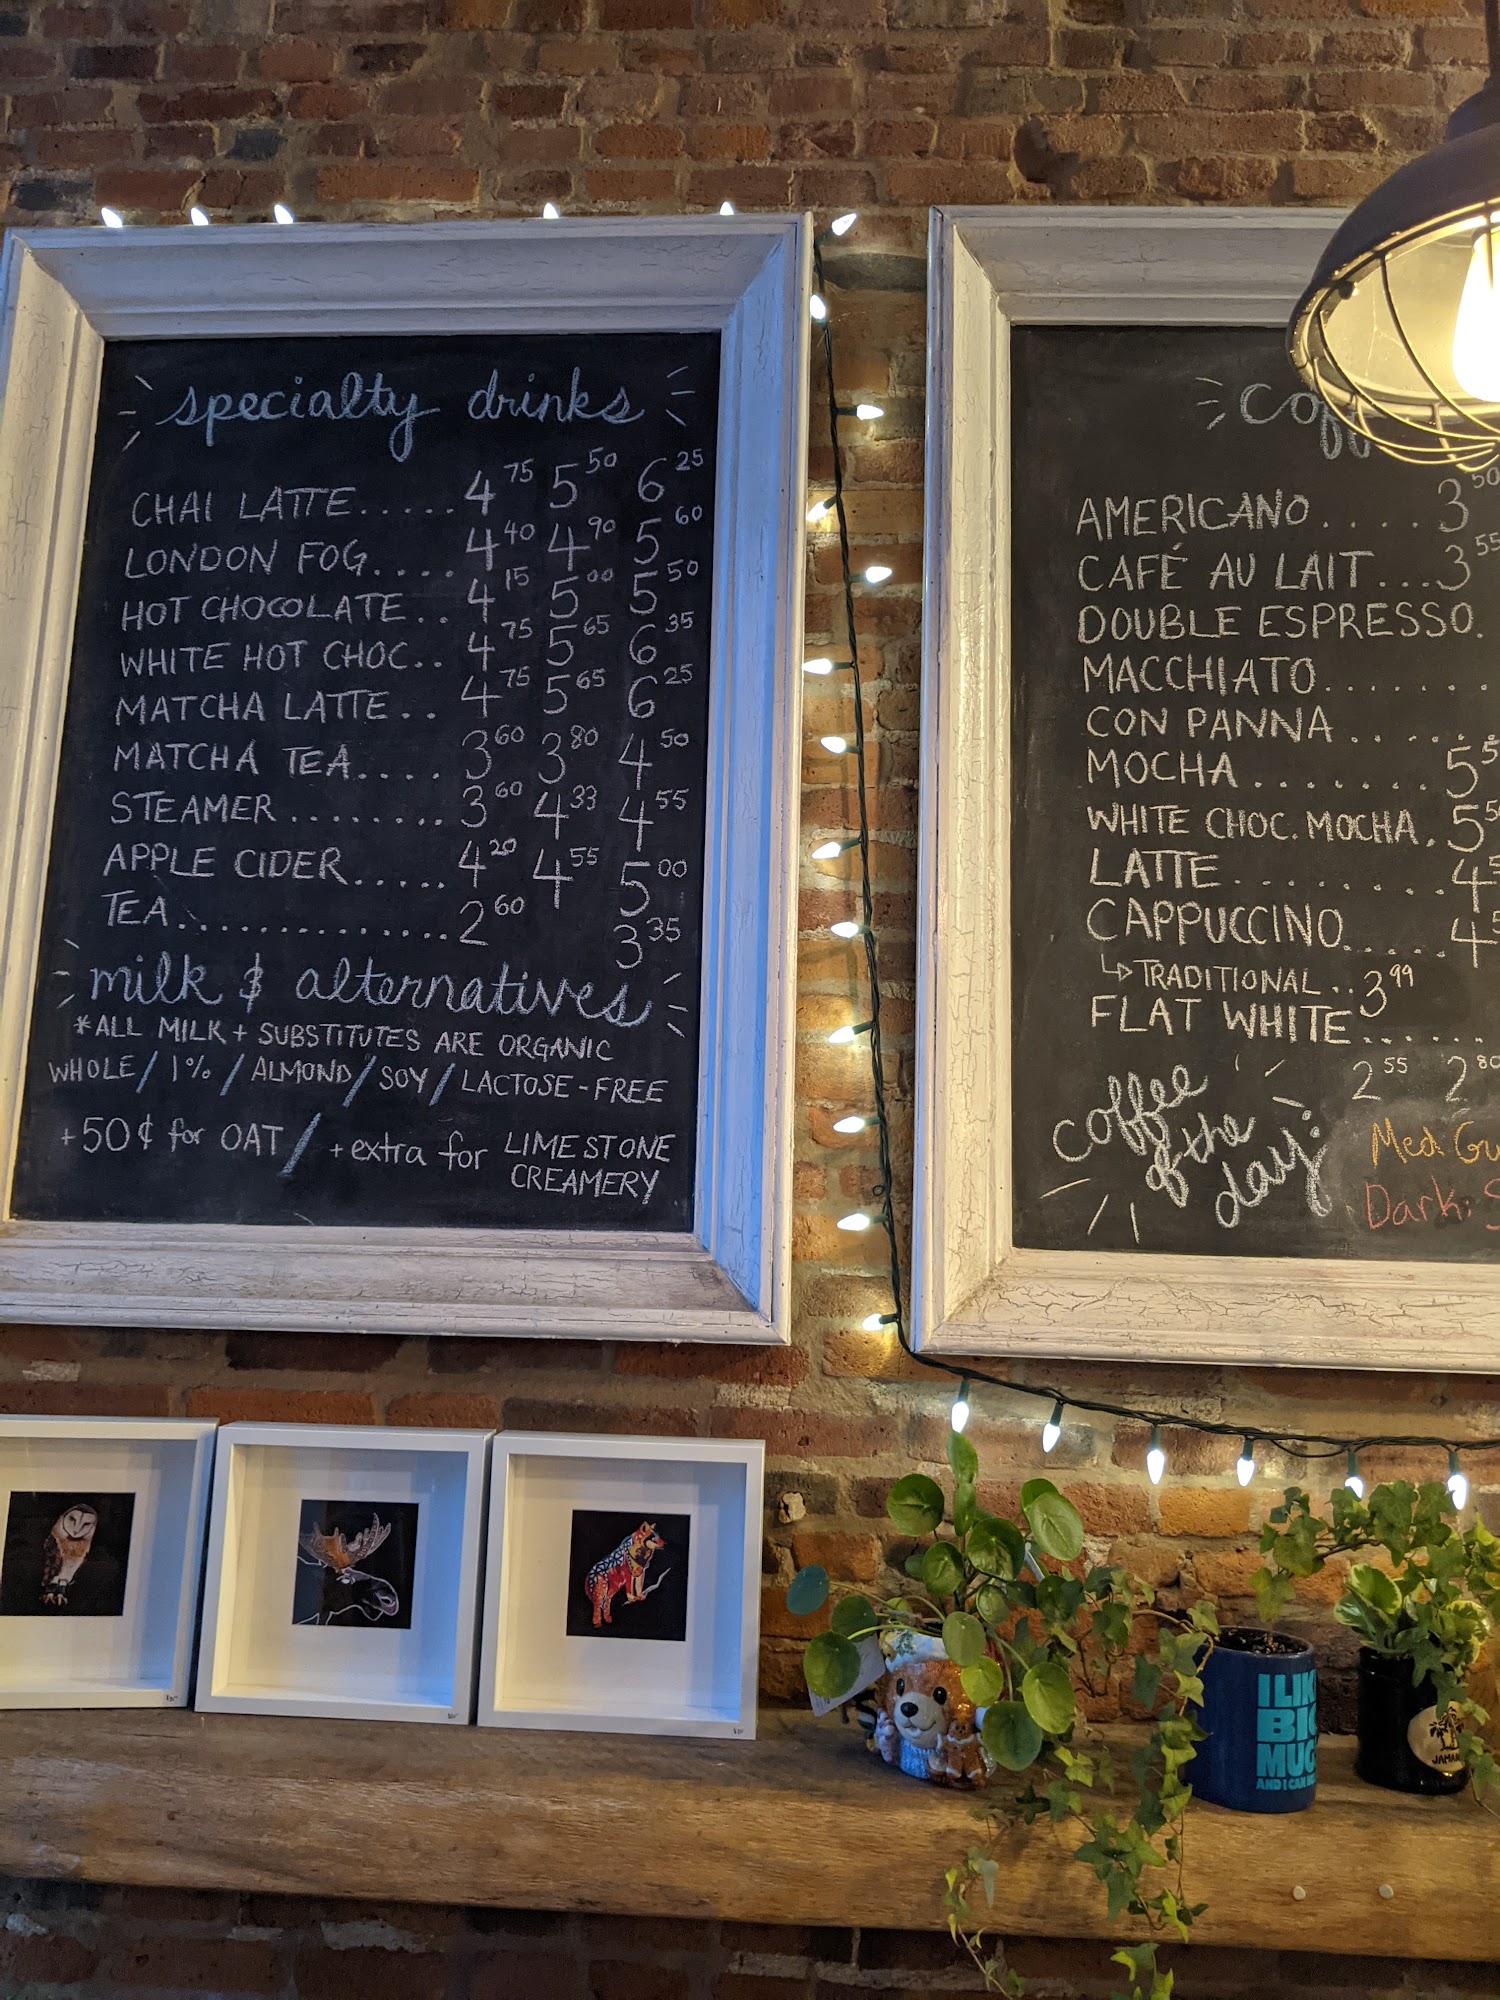 specialty drinks
CHAI LATTE..... 4 75 5 50 6 25
LONDON FOG.... 4 40 4 90 5 60
HOT CHOCOLATE.. 4 15 5 00 5 50
WHITE HOT CHOC.. 4 75 5 65 6 35
MATCHA LATTE.. 4 75 5 65 6 25
MATCHA TEA.... 3 60 3 80 4 50
STEAMER ........ 3 60 4 33 4 55
APPLE CIDER..... 4 20 4 55 5 00
TEA.............. 2 60 3 35
milk & alternatives
*ALL MILK + SUBSTITUTES ARE ORGANIC
WHOLE / 1% / ALMOND / SOY / LACTOSE-FREE
+50¢ for OAT / +extra for LIMESTONE
CREAMERY
AMERICANO..... 3 50
CAFÉ AU LAIT... 3 55
DOUBLE ESPRESSO.
MACCHIATO.......
CON PANNA.......
MOCHA........ 5
WHITE CHOC. MOCHA. 5
LATTE......... 4
CAPPUCCINO..... 4
↳ TRADITIONAL.. 3 99
FLAT WHITE......
coffee
of the
day:
2 55 2 80
Med:
Dark:
I
BIG
MUGS
AND I CAN